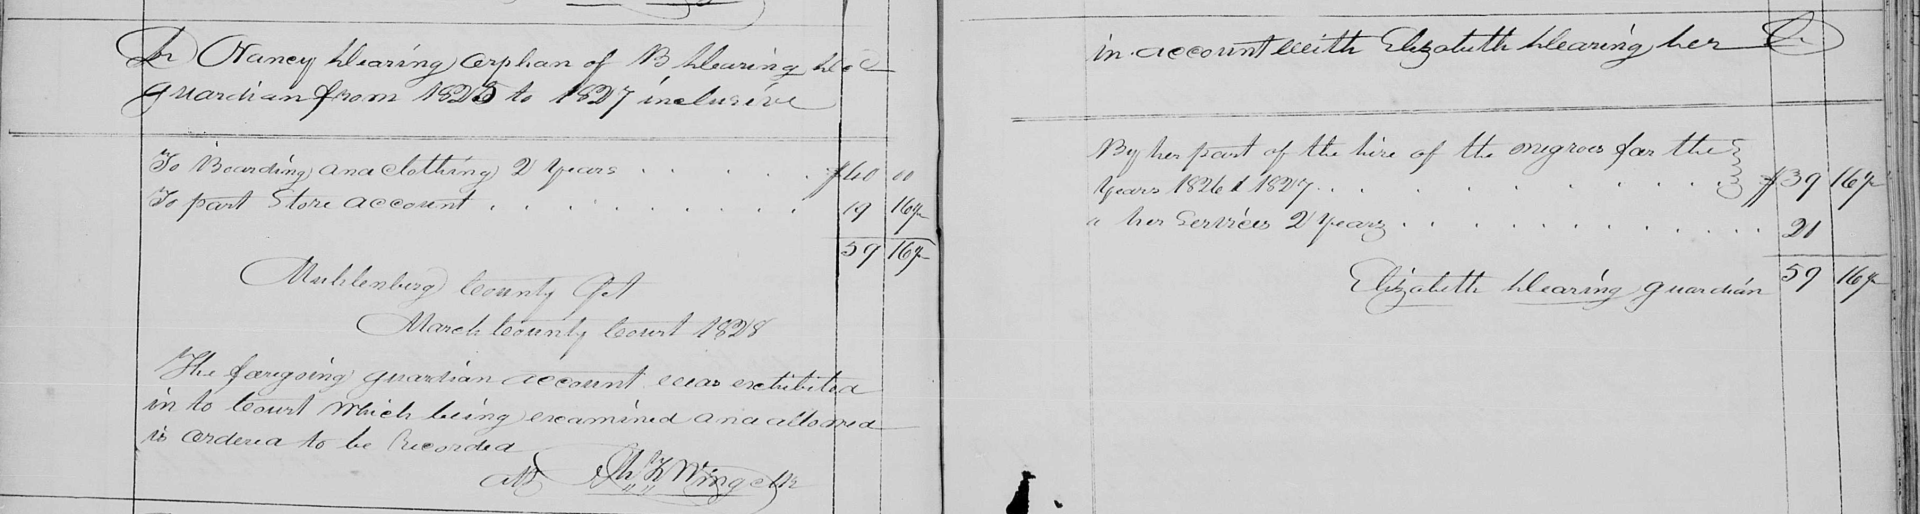 Dr Nancy Clearing orphan of B Clearing Decd
guardian from 1825 to 1827 inclusive
To Boarding and clothing 2 years . . . . . . $40 00
To part Store account . . . . . . . . . . 19 16½
59 16½
Muhlenberg County Sct
March County Court 1828
The foregoing guardian account was exhibited
in to Court which being examined and allowed
is ordered to be Recorded
Att Ch. F. Wing Clk
in account with Elizabeth Clearing her Cr
By her part of the hire of the negroes for the
years 1826 & 1827 . . . . . . . . . . $39 16½
" her Services 2 years . . . . . . . . . . . . 21
59 16½
Elizabeth Clearing guardian